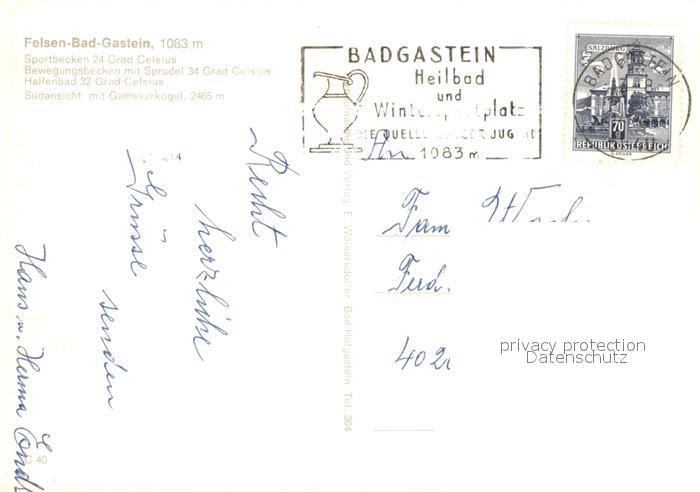 Felsen-Bad-Gastein, 1083 m
Sportbecken 24 Grad Celsius
Bewegungsbecken mit Sprudel 34 Grad Celsius
Hallenbad 32 Grad Celsius
Südansicht mit Gamskarkogel, 2465 m
BADGASTEIN
Heilbad
und
Wintersportplatz
DIE QUELLE
1083 m
SALZBURG
BADGASTEIN
70
REPUBLIK ÖSTERREICH
An
Fam
Ferd.
402
privacy protection
Datenschutz
Recht
herzliche
Grüsse
senden
Hans u. Herma
Verlag E. Wolkersdorfer, Bad Hofgastein, Tel. 364
C 40